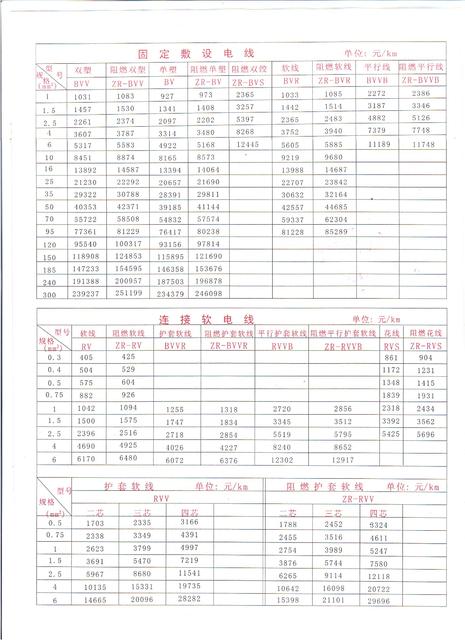 固定敷设电线 单位: 元/km
型号 双塑 阻燃双塑 单塑 阻燃单塑 阻燃双绞 软线 阻燃软线 平行线 阻燃平行线
规格(mm²) BVV ZR-BVV BV ZR-BV ZR-BVS BVR ZR-BVR BVVB ZR-BVVB
1 1031 1083 927 973 2365 1033 1085 2272 2386
1.5 1457 1530 1341 1408 3257 1442 1514 3187 3346
2.5 2261 2374 2097 2202 5397 2365 2483 4882 5126
4 3607 3787 3314 3480 8268 3752 3940 7379 7748
6 5317 5583 4922 5168 12445 5605 5885 11189 11748
10 8451 8874 8165 8573 9219 9680
16 13892 14587 13394 14064 13988 14687
25 21230 22292 20657 21690 22707 23842
35 29322 30788 28391 29811 30632 32164
50 40353 42371 39185 41144 42557 44685
70 55722 58508 54832 57574 59337 62304
95 77361 81229 76417 80238 81228 85289
120 95540 100317 93156 97814
150 118908 124853 115895 121690
185 147233 154595 146358 153676
240 191388 200957 187503 196878
300 239237 251199 234379 246098
连接软电线 单位: 元/km
型号 软线 阻燃软线 护套软线 阻燃护套软线 平行护套软线 阻燃平行护套软线 花线 阻燃花线
规格(mm²) RV ZR-RV BVVR ZR-BVVR RVVB ZR-RVVB RVS ZR-RVS
0.3 405 425 861 904
0.4 504 529 1172 1231
0.5 575 604 1348 1415
0.75 882 926 1839 1931
1 1042 1094 1255 1318 2720 2856 2318 2434
1.5 1500 1575 1747 1834 3345 3512 3392 3562
2.5 2396 2516 2718 2854 5519 5795 5425 5696
4 4690 4925 4026 4227 8240 8652
6 6170 6480 6072 6376 12302 12917
型号 护套软线 单位: 元/km 阻燃护套软线 单位: 元/km
规格 RVV ZR-RVV
(mm²) 二芯 三芯 四芯 二芯 三芯 四芯
0.5 1703 2335 3166 1788 2452 9324
0.75 2338 3349 4391 2455 3516 4611
1 2623 3799 4997 2754 3989 5247
1.5 3691 5470 7219 3876 5744 7580
2.5 5967 8680 11541 6265 9114 12118
4 10135 15331 19735 10642 16098 20722
6 14665 20096 28282 15398 21101 29696